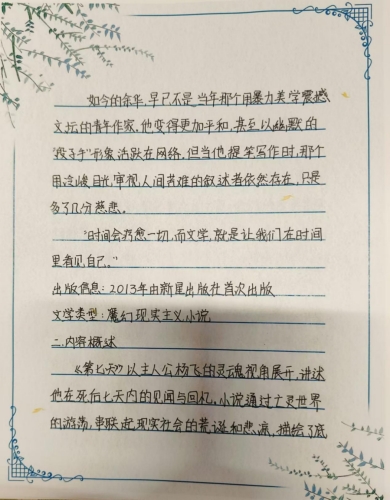 如今的余华,早已不是当年那个用暴力美学震撼
文坛的青年作家,他变得更加平和,甚至以幽默的
"段子手"形象活跃在网络,但当他提笔写作时,那个
用冷峻目光审视人间苦难的叙述者依然存在,只是
多了几分慈悲。
"时间会疗愈一切,而文学,就是让我们在时间
里看见自己。"
出版信息:2013年由新星出版社首次出版
文学类型:魔幻现实主义小说
二.内容概述
《第七天》以主人公杨飞的灵魂视角展开,讲述
他在死后七天内的见闻与回忆,小说通过亡灵世界
的游荡,串联起现实社会的荒诞和悲凉,描绘了底